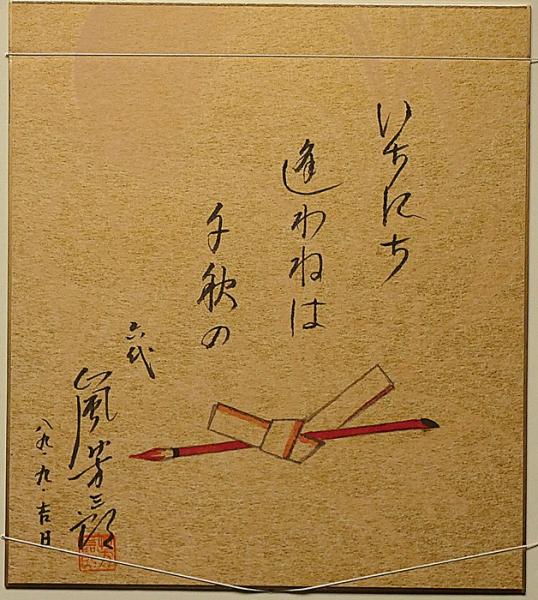 いちにち
逢わねは
千秋の
六代
嵐芳三郎
八九.九.吉日